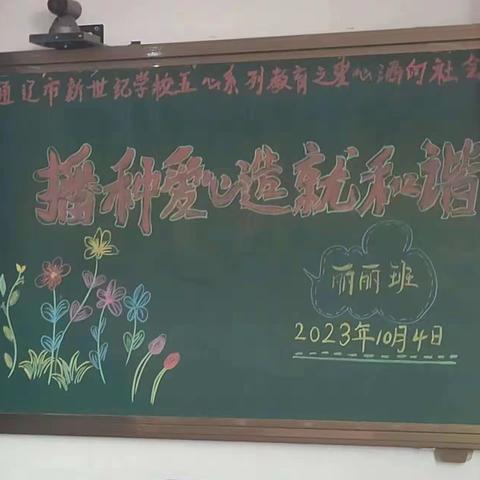 通辽市新世纪学校五心系列教育之爱心洒向社会
播种爱心造就和谐
丽丽班
2023年10月4日